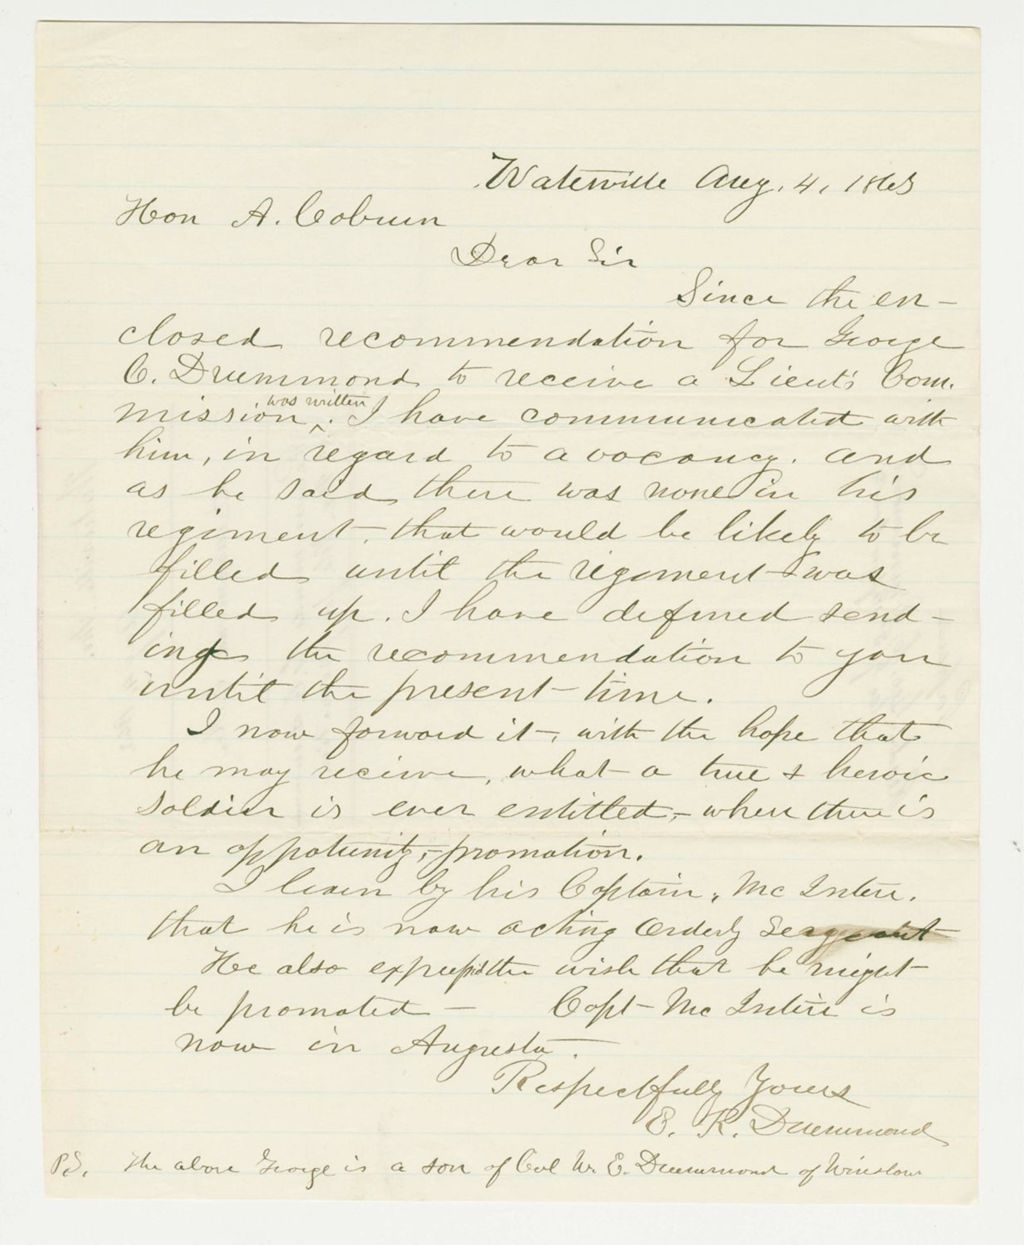 Waterville Aug. 4, 1863
Hon A. Coburn
Dear Sir
Since the en-
closed recommendation for George
C. Drummond to receive a Lieut's Com-
mission was written. I have communicated with
him, in regard to a vacancy. and
as he said there was none in his
regiment, that would be likely to be
filled until the regiment was
filled up. I have defered send-
ing the recommendation to you
until the present time.
I now forward it, with the hope that
he may recieve, what a true & heroic
soldier is ever entitled, - when there is
an oppotunity, - promotion.
I learn by his Captain, Mc Intire.
that he is now acting Orderly Sergeant
He also expressed the wish that he might
be promoted - Capt Mc Intire is
now in Augusta.
Respectfully Yours
E. R. Drummond
P.S. The above George is a son of Col W. E. Drummond of Winslow